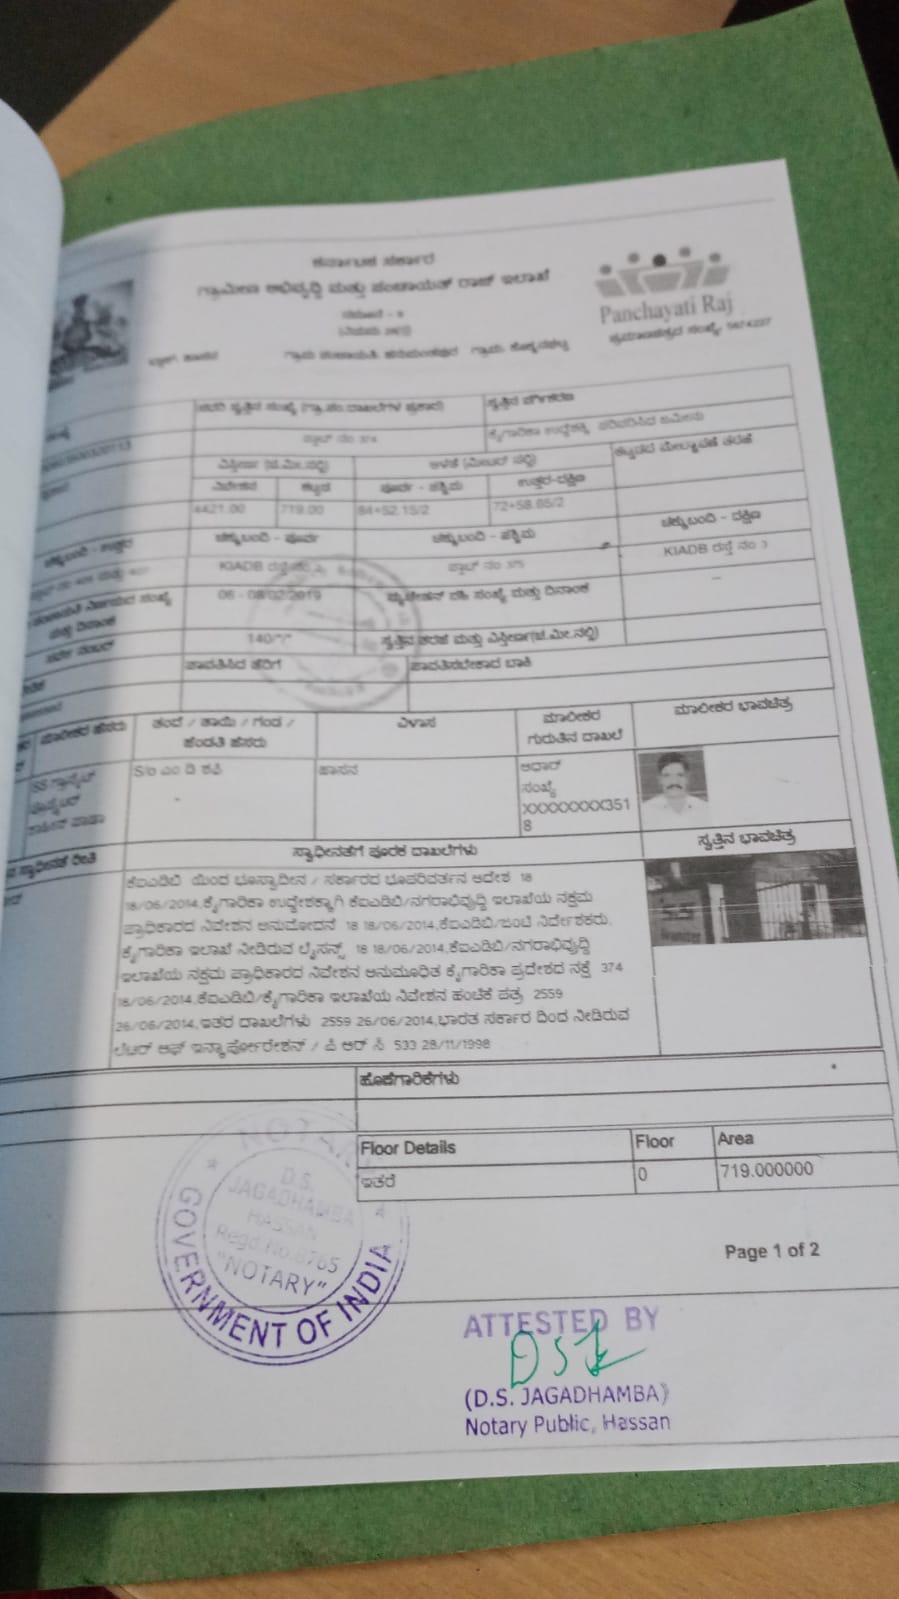 ಕರ್ನಾಟಕ ಸರ್ಕಾರ
ಗ್ರಾಮೀಣ ಅಭಿವೃದ್ಧಿ ಮತ್ತು ಪಂಚಾಯತ್ ರಾಜ್ ಇಲಾಖೆ
Panchayati Raj
ಸ್ವತ್ತಿನ ವರ್ಗೀಕರಣ
ಪ್ಲಾಟ್ ನಂ 374
ಕೈಗಾರಿಕಾ ಉದ್ದೇಶಕ್ಕೆ ಪರಿವರ್ತಿಸಿದ ಜಮೀನು
ವಿಸ್ತೀರ್ಣ (ಚ.ಮೀ.ನಲ್ಲಿ) ಅಳತೆ (ಮೀಟರ್ ನಲ್ಲಿ)
ನಿವೇಶನ ಕಟ್ಟಡ ಪೂರ್ವ - ಪಶ್ಚಿಮ ಉತ್ತರ-ದಕ್ಷಿಣ
4421.00 719.00 84+52.15/2 72+58.65/2
ಚಕ್ಕುಬಂದಿ - ಉತ್ತರ ಚಕ್ಕುಬಂದಿ - ಪೂರ್ವ ಚಕ್ಕುಬಂದಿ - ಪಶ್ಚಿಮ ಚಕ್ಕುಬಂದಿ - ದಕ್ಷಿಣ
KIADB ರಸ್ತೆ ಪ್ಲಾಟ್ ನಂ 375 KIADB ರಸ್ತೆ ನಂ 3
ಮತ್ತು ದಿನಾಂಕ 06 - 08/02/2019 ಮ್ಯುಟೇಶನ್ ವಹಿ ಸಂಖ್ಯೆ ಮತ್ತು ದಿನಾಂಕ
ಸರ್ವೆ ನಂಬರ್ 140/*/* ಸ್ವತ್ತಿನ ತರಹೆ ಮತ್ತು ವಿಸ್ತೀರ್ಣ(ಚ.ಮೀ.ನಲ್ಲಿ)
ಪಾವತಿಸಿದ ತೆರಿಗೆ ಪಾವತಿಸಬೇಕಾದ ಬಾಕಿ
ಮಾಲೀಕರ ಹೆಸರು ತಂದೆ / ತಾಯಿ / ಗಂಡ / ವಿಳಾಸ ಮಾಲೀಕರ ಮಾಲೀಕರ ಭಾವಚಿತ್ರ
ಹೆಂಡತಿ ಹೆಸರು ಗುರುತಿನ ದಾಖಲೆ
S/o ಎಂ ಡಿ ಶಫಿ ಹಾಸನ ಆಧಾರ್
ಸಂಖ್ಯೆ
XXXXXXXX351
8
ಸ್ವಾಧೀನತೆಗೆ ಪೂರಕ ದಾಖಲೆಗಳು ಸ್ವತ್ತಿನ ಭಾವಚಿತ್ರ
ಕೆಐಎಡಿಬಿ ಯಿಂದ ಭೂಸ್ವಾಧೀನ / ಸರ್ಕಾರದ ಭೂಪರಿವರ್ತನ ಆದೇಶ 18
18/06/2014,ಕೈಗಾರಿಕಾ ಉದ್ದೇಶಕ್ಕಾಗಿ ಕೆಐಎಡಿಬಿ/ನಗರಾಭಿವೃದ್ಧಿ ಇಲಾಖೆಯ ಸಕ್ಷಮ
ಪ್ರಾಧಿಕಾರದ ನಿವೇಶನ ಅನುಮೋದನೆ 18 18/06/2014,ಕೆಐಎಡಿಬಿ/ಜಂಟಿ ನಿರ್ದೇಶಕರು,
ಕೈಗಾರಿಕಾ ಇಲಾಖೆ ನೀಡಿರುವ ಲೈಸನ್ಸ್ 18 18/06/2014,ಕೆಐಎಡಿಬಿ/ನಗರಾಭಿವೃದ್ಧಿ
ಇಲಾಖೆಯ ಸಕ್ಷಮ ಪ್ರಾಧಿಕಾರದ ನಿವೇಶನ ಅನುಮೋದಿತ ಕೈಗಾರಿಕಾ ಪ್ರದೇಶದ ನಕ್ಷೆ 374
18/06/2014,ಕೆಐಎಡಿಬಿ/ಕೈಗಾರಿಕಾ ಇಲಾಖೆಯ ನಿವೇಶನ ಹಂಚಿಕೆ ಪತ್ರ 2559
26/06/2014,ಇತರ ದಾಖಲೆಗಳು 2559 26/06/2014,ಭಾರತ ಸರ್ಕಾರ ದಿಂದ ನೀಡಿರುವ
ಲೆಟರ್ ಆಫ್ ಇನ್ಕಾರ್ಪೋರೇಶನ್ / ಪಿ ಆರ್ ಸಿ 533 28/11/1998
ಹೊಣೆಗಾರಿಕೆಗಳು
Floor Details Floor Area
ಇತರೆ 0 719.000000
NOTARY
D.S.
JAGADHAMBA
HASSAN
Regd.No.8765
"NOTARY"
GOVERNMENT OF INDIA
Page 1 of 2
ATTESTED BY
(D.S. JAGADHAMBA)
Notary Public, Hassan